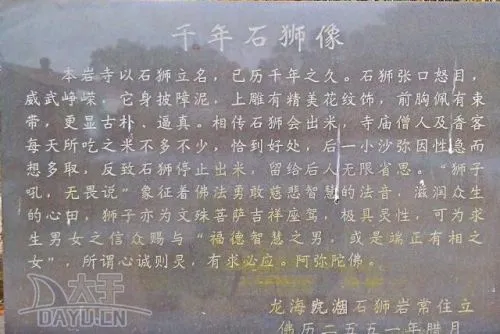 千年石狮像
本岩寺以石狮立名，已历千年之久。石狮张口怒目，
威武峥嵘，它身披障泥，上雕有精美花纹饰，前胸佩有束
带，更显古朴、逼真。相传石狮会出米，寺庙僧人及香客
每天所吃之米不多不少，恰到好处，后一小沙弥因性急而
想多取，反致石狮停止出米，留给后人无限省思。“狮子
吼，无畏说”象征着佛法勇敢慈悲智慧的法音，滋润众生
的心田，狮子亦为文殊菩萨吉祥座驾，极具灵性，可为求
生男女之信众赐与“福德智慧之男，或是端正有相之
女”，所谓心诚则灵，有求必应。阿弥陀佛。
龙海 石狮岩常住立
佛历二五五一年腊月
大于
DAYU.CN